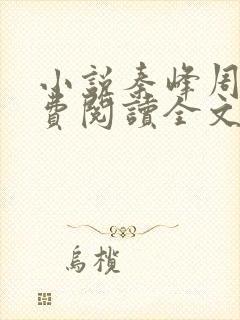 小説秦峰周
費閱讀全文
烏欖